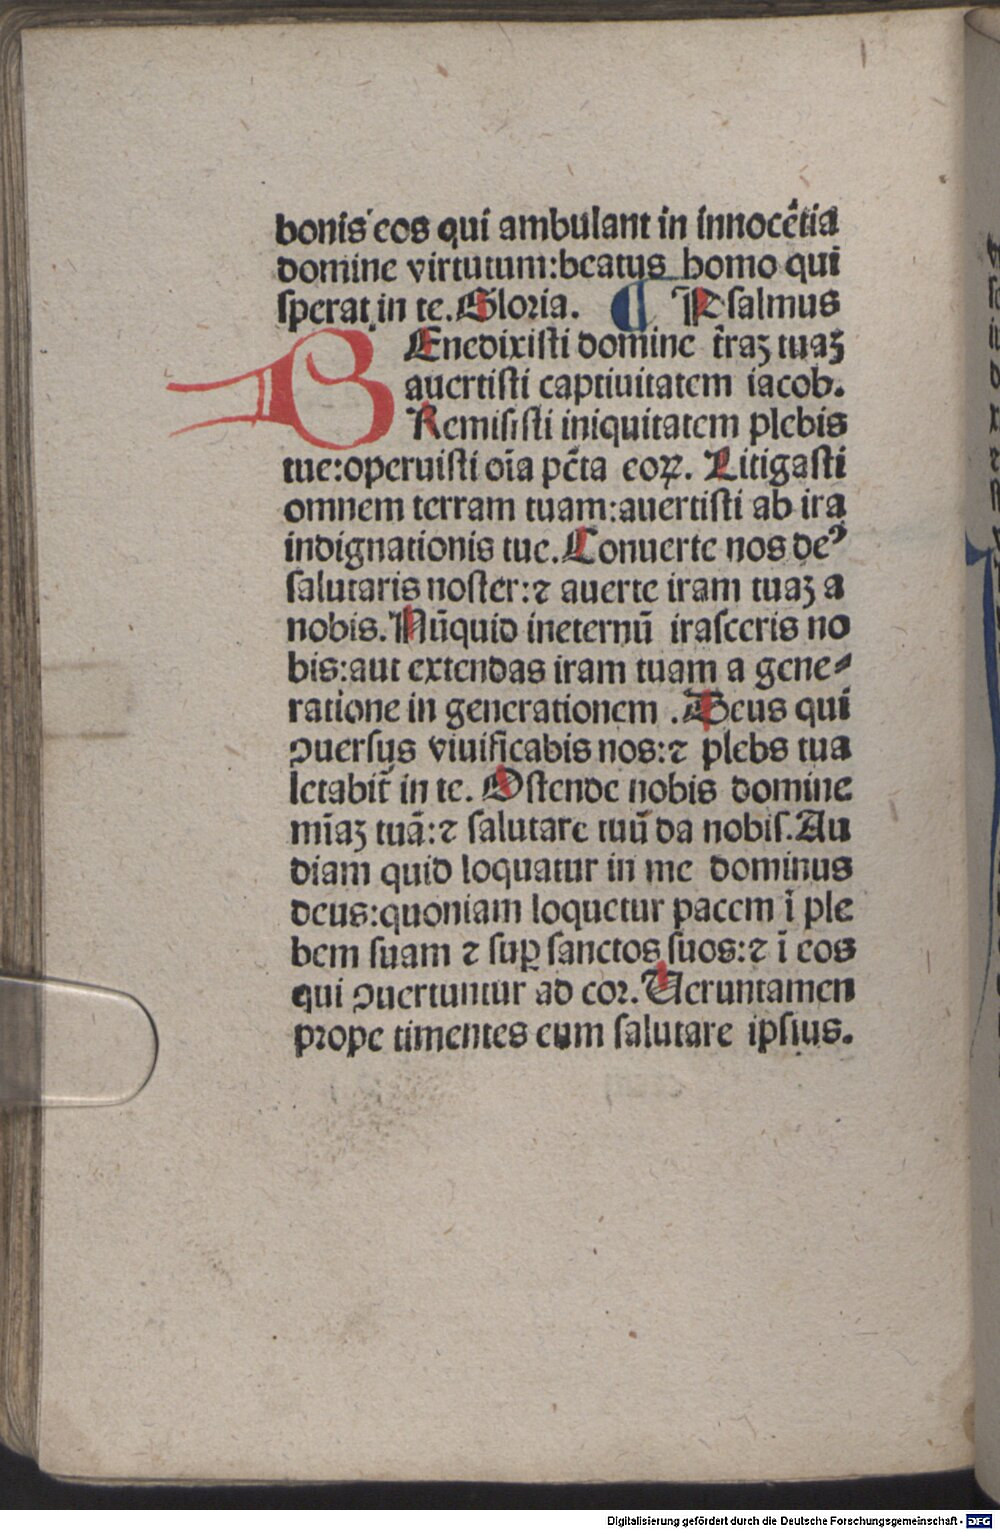 bonis eos qui ambulant in innocẽtia
domine virtutum:beatus homo qui
ſperat in te.Gloria. ¶ Pſalmus
BEnedixiſti domine t̃raꝫ tuaꝫ
auertiſti captiuitatem iacob.
Remiſiſti iniquitatem plebis
tue:operuiſti oĩa pc̃ta eoꝝ. Litigaſti
omnem terram tuam:auertiſti ab ira
indignationis tue.Conuerte nos deꝰ
ſalutaris noſter:⁊ auerte iram tuaꝫ a
nobis.Nũquid ineternũ iraſceris no
bis:aut extendas iram tuam a gene⸗
ratione in generationem .Deus qui
ꝯuerſus viuificabis nos:⁊ plebs tua
letabit̃ in te. Oſtende nobis domine
mĩaꝫ tuã:⁊ ſalutare tuũ da nobiſ.Au
diam quid loquatur in me dominus
deus:quoniam loquetur pacem ĩ ple
bem ſuam ⁊ ſuꝑ ſanctos ſuos:⁊ ĩ eos
qui ꝯuertuntur ad coꝛ.Ueruntamen
pꝛope timentes eum ſalutare ipſius.
Digitalisierung gefördert durch die Deutsche Forschungsgemeinschaft - DFG